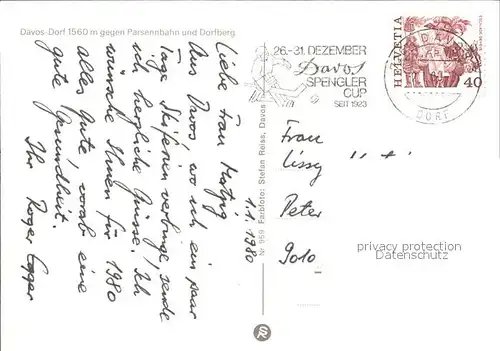 Davos-Dorf 1560 m gegen Parsennbahn und Dorfberg
1.1.1980
Liebe Frau
Aus Davos, wo ich ein paar
Tage Skiferien verbringe, sende
ich herzliche Grüsse. Ich
wünsche Ihnen für 1980
alles Gute, vorab eine
gute Gesundheit.
Ihr Roger Egger
Nr. 959 Farbfoto: Stefan Reiss, Davos
26.-31. DEZEMBER
Davos
SPENGLER
CUP
SEIT 1923
HELVETIA
40
DORF
Frau
Lissy
Peter
9010
privacy protection
Datenschutz